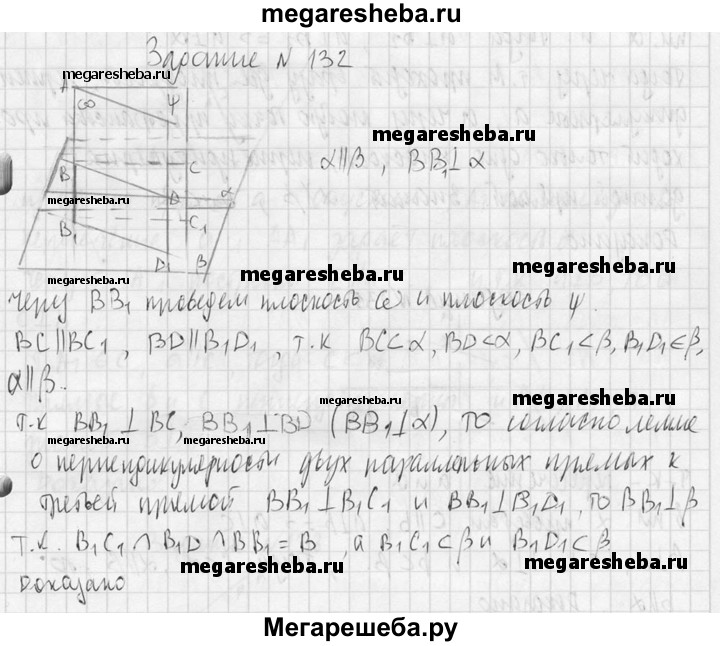 megaresheba.ru
Задание N 132
megaresheba.ru
A ω φ
megaresheba.ru
α∥β, BB₁⊥α
B C
D α
megaresheba.ru
C₁
B₁
D₁ B
megaresheba.ru
megaresheba.ru
megaresheba.ru
Через BB₁ проведем плоскость ω и плоскость φ.
BC∥BC₁, BD∥B₁D₁, т.к BC⊂α, BD⊂α, BC₁⊂β, B₁D₁∈β,
megaresheba.ru
α∥β.
megaresheba.ru
т.к BB₁⊥BC, BB₁⊥BD (BB₁⊥α), то согласно лемме
megaresheba.ru
megaresheba.ru
megaresheba.ru
о перпендикулярности двух параллельных прямых к
третьей прямой BB₁⊥B₁C₁ и BB₁⊥B₁D₁, то BB₁⊥β
megaresheba.ru
т.к. B₁C₁∩B₁D∩BB₁=B, а B₁C₁⊂β и B₁D₁⊂β
megaresheba.ru
megaresheba.ru
Доказано
Мегарешеба.ру